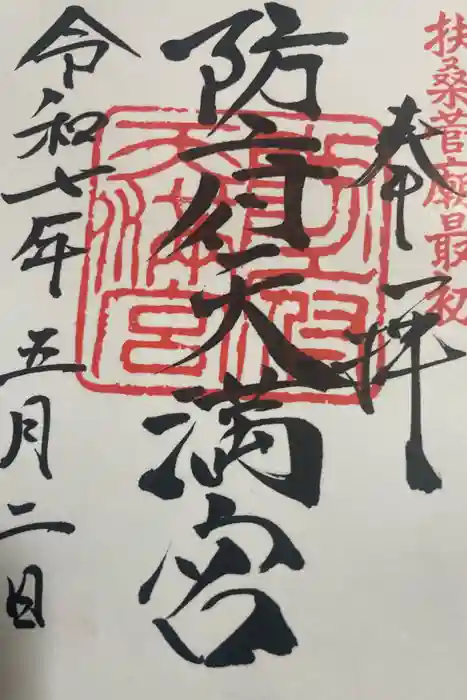 扶桑菅廟最初
奉拝
防府天満宮
令和七年 五月二日